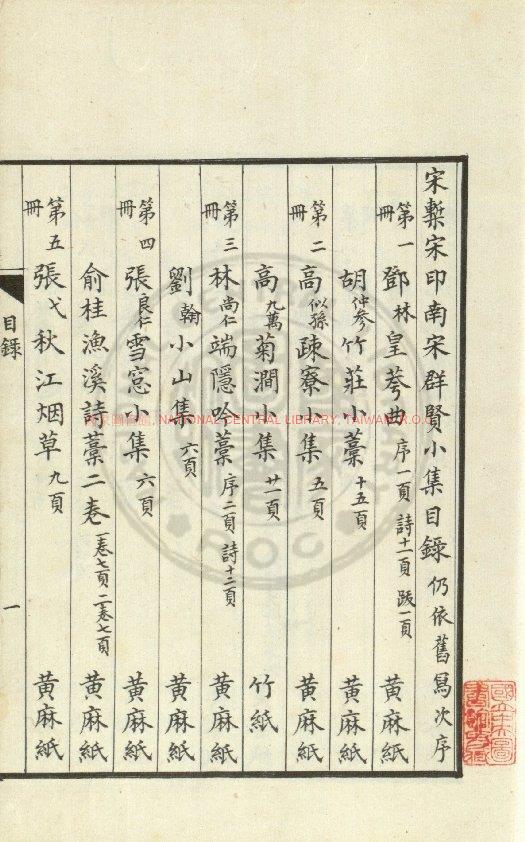 宋槧宋印南宋群賢小集目錄 仍依舊寫次序
第一冊 鄧林皇荂曲 序一頁 詩十一頁 跋一頁 黃麻紙
胡仲參竹莊小藁 十五頁 黃麻紙
第二冊 高似孫疎寮小集 五頁 黃麻紙
高九萬菊澗小集 廿一頁 竹紙
第三冊 林尚仁端隱吟藁 序二頁 詩十二頁 黃麻紙
劉翰小山集 六頁 黃麻紙
第四冊 張良仁雪窓小集 六頁 黃麻紙
俞桂漁溪詩藁二卷 一卷七頁 二卷七頁 黃麻紙
第五冊 張弋秋江烟草 九頁 黃麻紙
目錄
一
NATIONAL CENTRAL LIBRARY, TAIWAN, R.O.C.